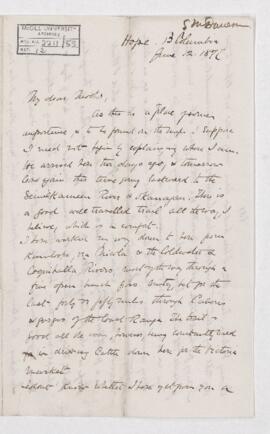 McGILL UNIVERSITY
ARCHIVES
ACC. NO.
REF. 12
G M Dawson
Hope, B Columbia
June 12 1877
My dear Mother,
As this is a place
importance & to be found on the map I suppose
I need not begin by explaining where I am.
We arrived here two days ago, & tomorrow
leave again this time going eastward to the
Similkameen River & Okanagan. There is
a good well travelled trail all the way, I
believe, which is a comfort.
I have worked my way down to here from
Kamloops, via Nicola & the Coldwater &
Coquihalla Rivers most of the way through a
fine open bunch grass country, but for the
last forty or fifty miles through Cañons
& gorges of the Coast Range. The trail is
good all the way, however, being constantly used
in driving Cattle down here for the Victoria
market.
I dont know whether I have yet given you a